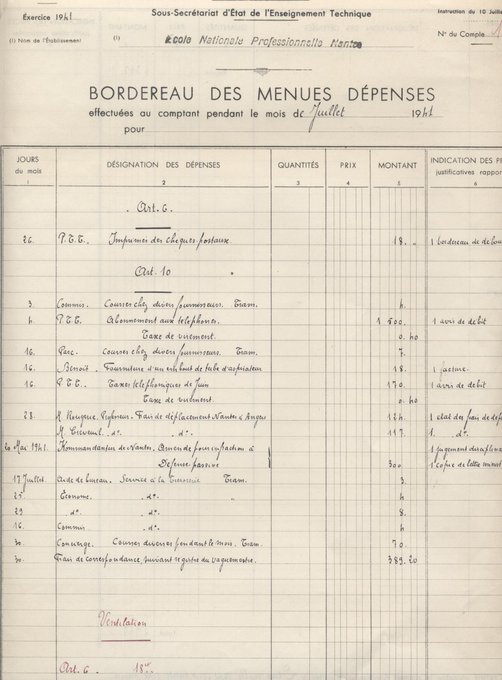 Exercice 1941
Sous-Secrétariat d'État de l'Enseignement Technique
Instruction du 10 Juille
(1) Nom de l'Établissement
(1) École Nationale Professionnelle Nantes
N° du Compte
BORDEREAU DES MENUES DÉPENSES
effectuées au comptant pendant le mois de Juillet 1941
pour
JOURS du mois DÉSIGNATION DES DÉPENSES QUANTITÉS PRIX MONTANT INDICATION DES PI
justificatives rappor
1 2 3 4 5 6
Art. 6.
26. P.T.T. Imprimés des chèques postaux 18. " 1 bordereau de debou
Art. 10
3. Commis. Courses chez divers fournisseurs. Tram. 4.
4. P.T.T. Abonnement aux téléphones. 1 500. 1 avis de debit
Taxe de virement. 0. 40
16. Parc. Courses chez divers fournisseurs. Tram. 7.
16. Benoit. Fourniture d'un embout de tube d'aspirateur 18. 1 facture.
16. P.T.T. Taxes téléphoniques de Juin 170. 1 avis de debit
Taxe de virement. 0. 40
28. M. Professeur. Frais de déplacement Nantes à Angers 124. 1 etat des frais de dép
M. d°. d°. 117. 1. d°
20 Mai 1941. Kommandantur de Nantes. Amende pour infraction à 1 jugement disciplina
Défense passive 300 1 copie de lettre
17 Juillet. Aide de bureau. Service à la Trésorerie Tram. 3.
25. Économe. d° " 4
29 d°. d° 8
16. Commis. d° 4
30. Concierge. Courses diverses pendant le mois. Tram. 70
30. Frais de correspondance, suivant registre du vaguemestre. 389. 20
Ventilation
Art. 6. 18